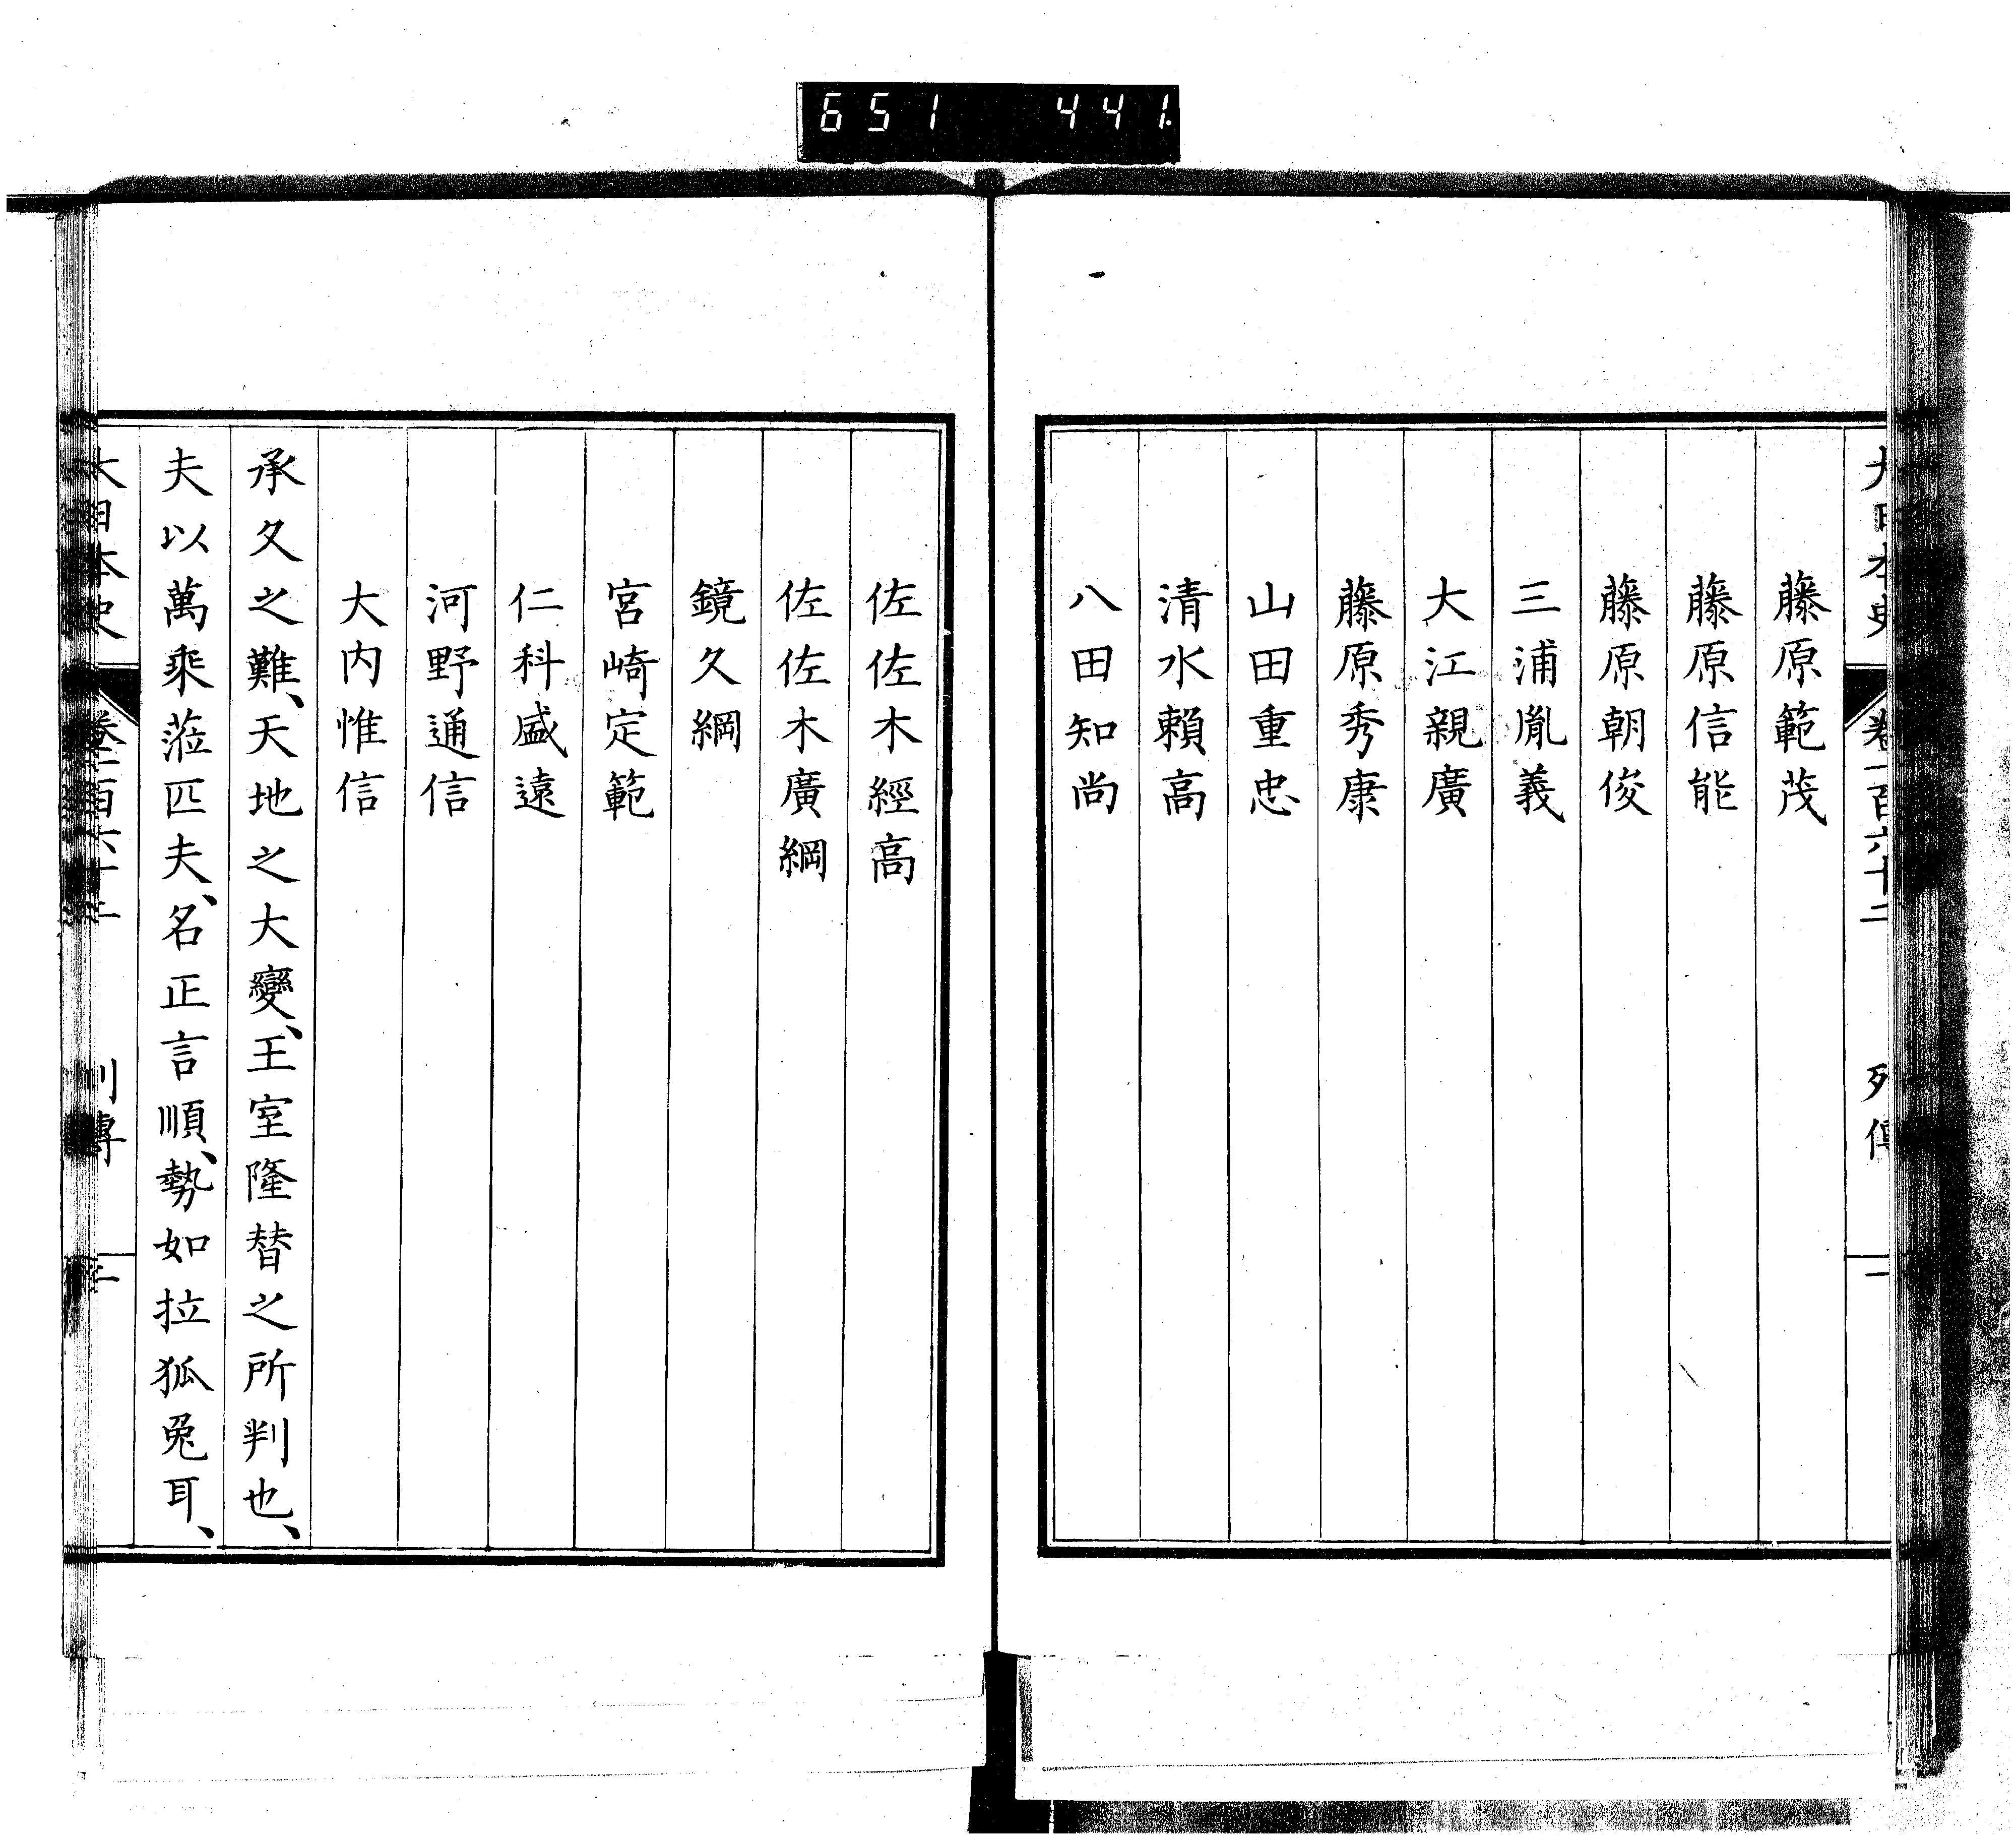 651 441
大日本史 卷一百六十二 列傳 一
藤原範茂
藤原信能
藤原朝俊
三浦胤義
大江親廣
藤原秀康
山田重忠
清水賴高
八田知尚
佐佐木經高
佐佐木廣綱
鏡久綱
宮崎定範
仁科盛遠
河野通信
大内惟信
承久之難、天地之大變、王室隆替之所判也、
夫以萬乘蒞匹夫、名正言順、勢如拉狐兎耳、
大日本史 卷一百六十二 列傳 二